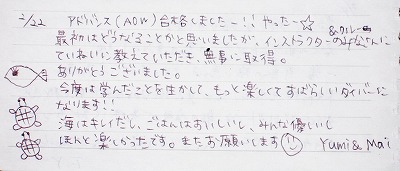 2/22 アドバンス(AOW)合格しましたー!! やったー☆
最初はどうなることかと思いましたが、インストラクターのみなさんに
&クルー
ていねいに教えていただき、無事に取得。
ありがとうございました。
今度は学んだことを生かして、もっと楽しくてすばらしいダイバーに
なります!!
海はキレイだし、ごはんはおいしいし、みんな優しいし
ほんと楽しかったです。またお願いします
Yumi & Mai